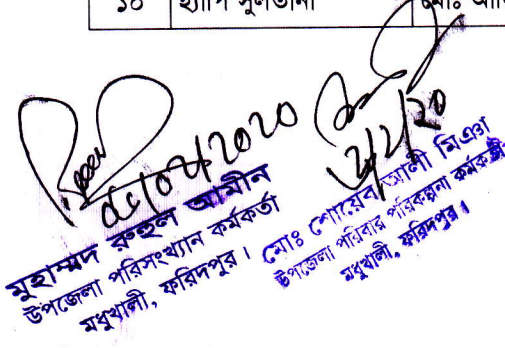 ১০ হ্যাপি সুলতানা মোঃ
০৫/০২/২০২০
মুহাম্মদ রুহুল আমীন
উপজেলা পরিসংখ্যান কর্মকর্তা
মধুখালী, ফরিদপুর।
মোঃ শোয়েব আলী মিঞা
উপজেলা পরিবার পরিকল্পনা কর্মকর্তা
মধুখালী, ফরিদপুর।